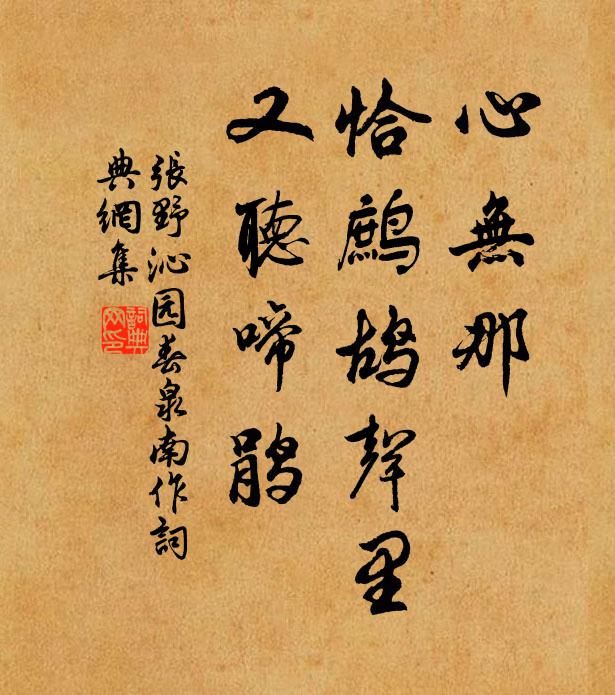 心無那
恰鷓鴣聲里
又聽啼鵑
張野沁园春泉南作詞
典網集
詞典
网印